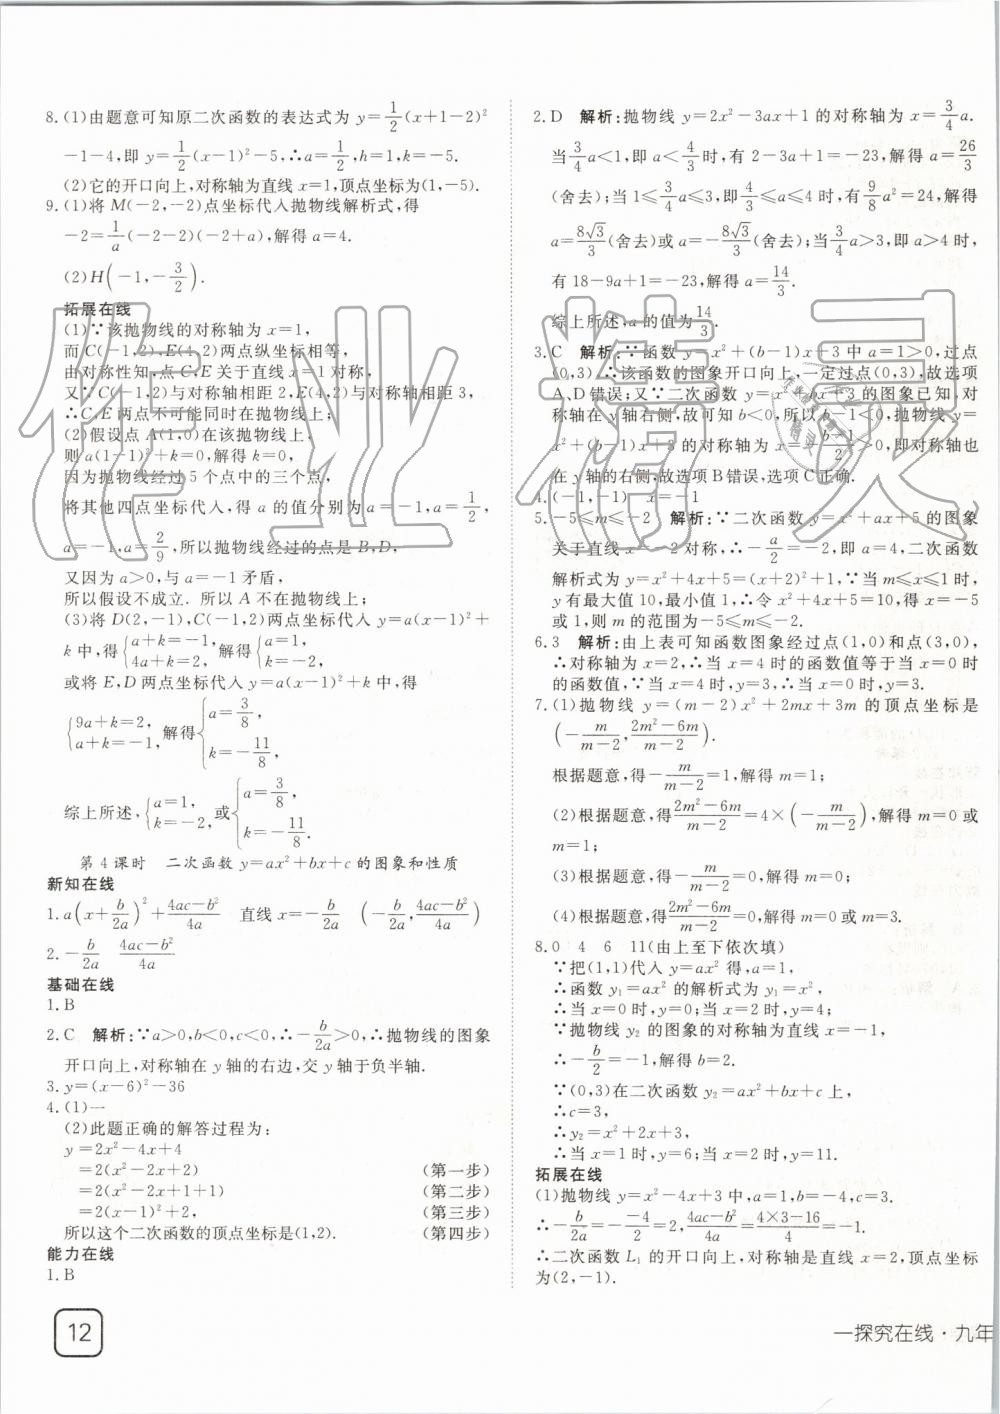 8.(1)由题意可知原二次函数的表达式为 y=1/2(x+1-2)²
-1-4,即 y=1/2(x-1)²-5,∴a=1/2,h=1,k=-5.
(2)它的开口向上,对称轴为直线 x=1,顶点坐标为(1,-5).
9.(1)将 M(-2,-2)点坐标代入抛物线解析式,得
-2=1/a(-2-2)(-2+a),解得 a=4.
(2)H(-1,-3/2).
拓展在线
(1)∵该抛物线的对称轴为 x=1,
而 C(-1,2),E(4,2)两点纵坐标相等,
由对称性知,点 C,E 关于直线 x=1 对称,
又∵C(-1,2)与对称轴相距 2,E(4,2)与对称轴相距 3,
∴C,E 两点不可能同时在抛物线上;
(2)假设点 A(1,0)在该抛物线上,
则 a(1-1)²+k=0,解得 k=0,
因为抛物线经过 5 个点中的三个点,
将其他四点坐标代入,得 a 的值分别为 a=-1,a=1/2,
a=-1,a=2/9,所以抛物线经过的点是 B,D,
又因为 a>0,与 a=-1 矛盾,
所以假设不成立. 所以 A 不在抛物线上;
(3)将 D(2,-1),C(-1,2)两点坐标代入 y=a(x-1)²+
k 中,得{a+k=-1, 4a+k=2, 解得{a=1, k=-2,
或将 E,D 两点坐标代入 y=a(x-1)²+k 中,得
{9a+k=2, a+k=-1, 解得{a=3/8, k=-11/8,
综上所述,{a=1, k=-2, 或{a=3/8, k=-11/8.
第 4 课时 二次函数 y=ax²+bx+c 的图象和性质
新知在线
1.a(x+b/2a)²+(4ac-b²)/4a 直线 x=-b/2a (-b/2a,(4ac-b²)/4a)
2.-b/2a (4ac-b²)/4a
基础在线
1.B
2.C 解析:∵a>0,b<0,c<0,∴-b/2a>0,∴抛物线的图象
开口向上,对称轴在 y 轴的右边,交 y 轴于负半轴.
3.y=(x-6)²-36
4.(1)一
(2)此题正确的解答过程为:
y=2x²-4x+4
=2(x²-2x+2) (第一步)
=2(x²-2x+1+1) (第二步)
=2(x-1)²+2, (第三步)
所以这个二次函数的顶点坐标是(1,2). (第四步)
能力在线
1.B
12
2.D 解析:抛物线 y=2x²-3ax+1 的对称轴为 x=3/4a.
当3/4a<1,即 a<4/3时,有 2-3a+1=-23,解得 a=26/3
(舍去);当 1≤3/4a≤3,即4/3≤a≤4 时,有9/8a²=24,解得
a=8√3/3(舍去)或 a=-8√3/3(舍去);当3/4a>3,即 a>4 时,
有 18-9a+1=-23,解得 a=14/3.
综上所述,a 的值为14/3.
3.C 解析:∵函数 y=x²+(b-1)x+3 中 a=1>0,过点
(0,3),∴该函数的图象开口向上,一定过点(0,3),故选项
A,D 错误;又∵二次函数 y=x²+bx+3 的图象已知,对
称轴在 y 轴右侧,故可知 b<0,所以 b-1<0,抛物线 y=
x²+(b-1)x+3 的对称轴为 x=-(b-1)/2>0,即对称轴也
在 y 轴的右侧,故选项 B 错误,选项 C 正确.
4.(-1,-1) x=-1
5.-5≤m≤-2 解析:∵二次函数 y=x²+ax+5 的图象
关于直线 x=-2 对称,∴-a/2=-2,即 a=4,二次函数
解析式为 y=x²+4x+5=(x+2)²+1,∵当 m≤x≤1 时,
y 有最大值 10,最小值 1,∴令 x²+4x+5=10,得 x=-5
或 1,则 m 的范围为-5≤m≤-2.
6.3 解析:由上表可知函数图象经过点(1,0)和点(3,0),
∴对称轴为 x=2,∴当 x=4 时的函数值等于当 x=0 时
的函数值,∵当 x=4 时,y=3,∴当 x=0 时,y=3.
7.(1)抛物线 y=(m-2)x²+2mx+3m 的顶点坐标是
(-m/(m-2),(2m²-6m)/(m-2)).
根据题意,得-m/(m-2)=1,解得 m=1;
(2)根据题意,得(2m²-6m)/(m-2)=4×(-m/(m-2)),解得 m=0 或
m=1;
(3)根据题意,得-m/(m-2)=0,解得 m=0;
(4)根据题意,得(2m²-6m)/(m-2)=0,解得 m=0 或 m=3.
8.0 4 6 11(由上至下依次填)
∵把(1,1)代入 y=ax² 得,a=1,
∴函数 y₁=ax² 的解析式为 y₁=x²,
∴当 x=0 时,y=0;当 x=2 时,y=4;
∵抛物线 y₂ 的图象的对称轴为直线 x=-1,
∴-b/2=-1,解得 b=2.
∵(0,3)在二次函数 y₂=ax²+bx+c 上,
∴c=3,
∴y₂=x²+2x+3,
∴当 x=1 时,y=6;当 x=2 时,y=11.
拓展在线
(1)抛物线 y=x²-4x+3 中,a=1,b=-4,c=3.
∴-b/2a=-(-4)/2=2,(4ac-b²)/4a=(4×3-16)/4=-1.
∴二次函数 L₁ 的开口向上,对称轴是直线 x=2,顶点坐标
为(2,-1).
一探究在线·九年
作业精灵